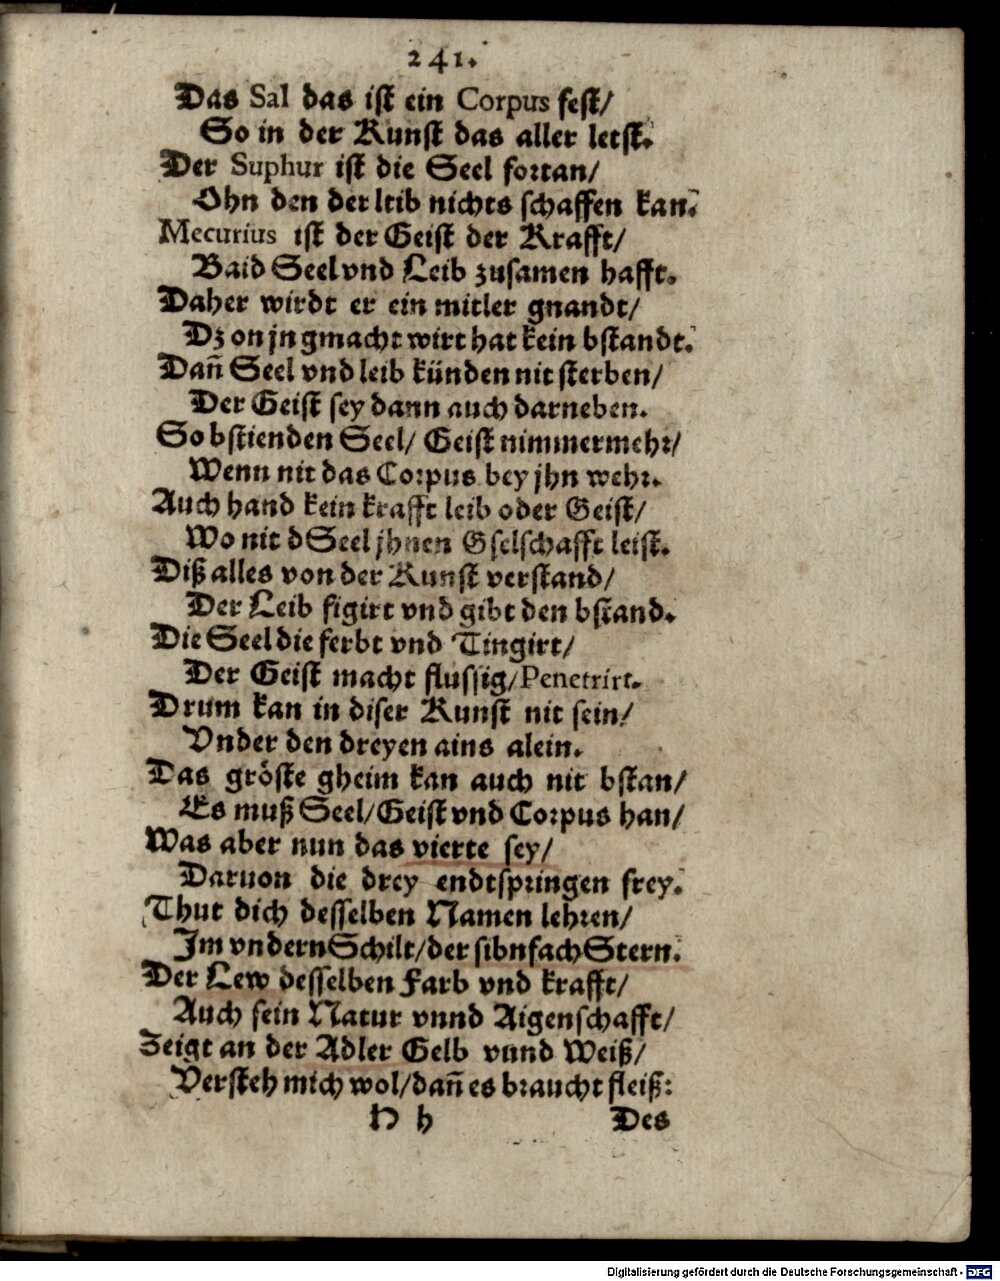 241.
Das Sal das ist ein Corpus fest/
So in der Kunst das aller letst.
Der Suphur ist die Seel fortan/
Ohn den der leib nichts schaffen kan.
Mecurius ist der Geist der Krafft/
Baid Seel vnd Leib zusamen hafft.
Daher wirdt er ein mitler gnandt/
Dz on jn gmacht wirt hat kein bstandt.
Dañ Seel vnd leib künden nit sterben/
Der Geist sey dann auch darneben.
So bstienden Seel/ Geist nimmermehr/
Wenn nit das Corpus bey jhn wehr.
Auch hand kein krafft leib oder Geist/
Wo nit dSeel jhnen Gselschafft leist.
Diß alles von der Kunst verstand/
Der Leib figirt vnd gibt den bstand.
Die Seel die ferbt vnd Tingirt/
Der Geist macht flussig/Penetrirt.
Drum kan in diser Kunst nit sein/
Vnder den dreyen ains alein.
Das gröste gheim kan auch nit bstan/
Es muß Seel/Geist vnd Corpus han/
Was aber nun das vierte sey/
Daruon die drey endtspringen frey.
Thut dich desselben Namen lehren/
Im vndern Schilt/der sibnfach Stern.
Der Lew desselben Farb vnd krafft/
Auch sein Natur vnnd Aigenschafft/
Zeigt an der Adler Gelb vnnd Weiß/
Versteh mich wol/dañ es braucht fleiß:
H h Des
Digitalisierung gefördert durch die Deutsche Forschungsgemeinschaft - DFG